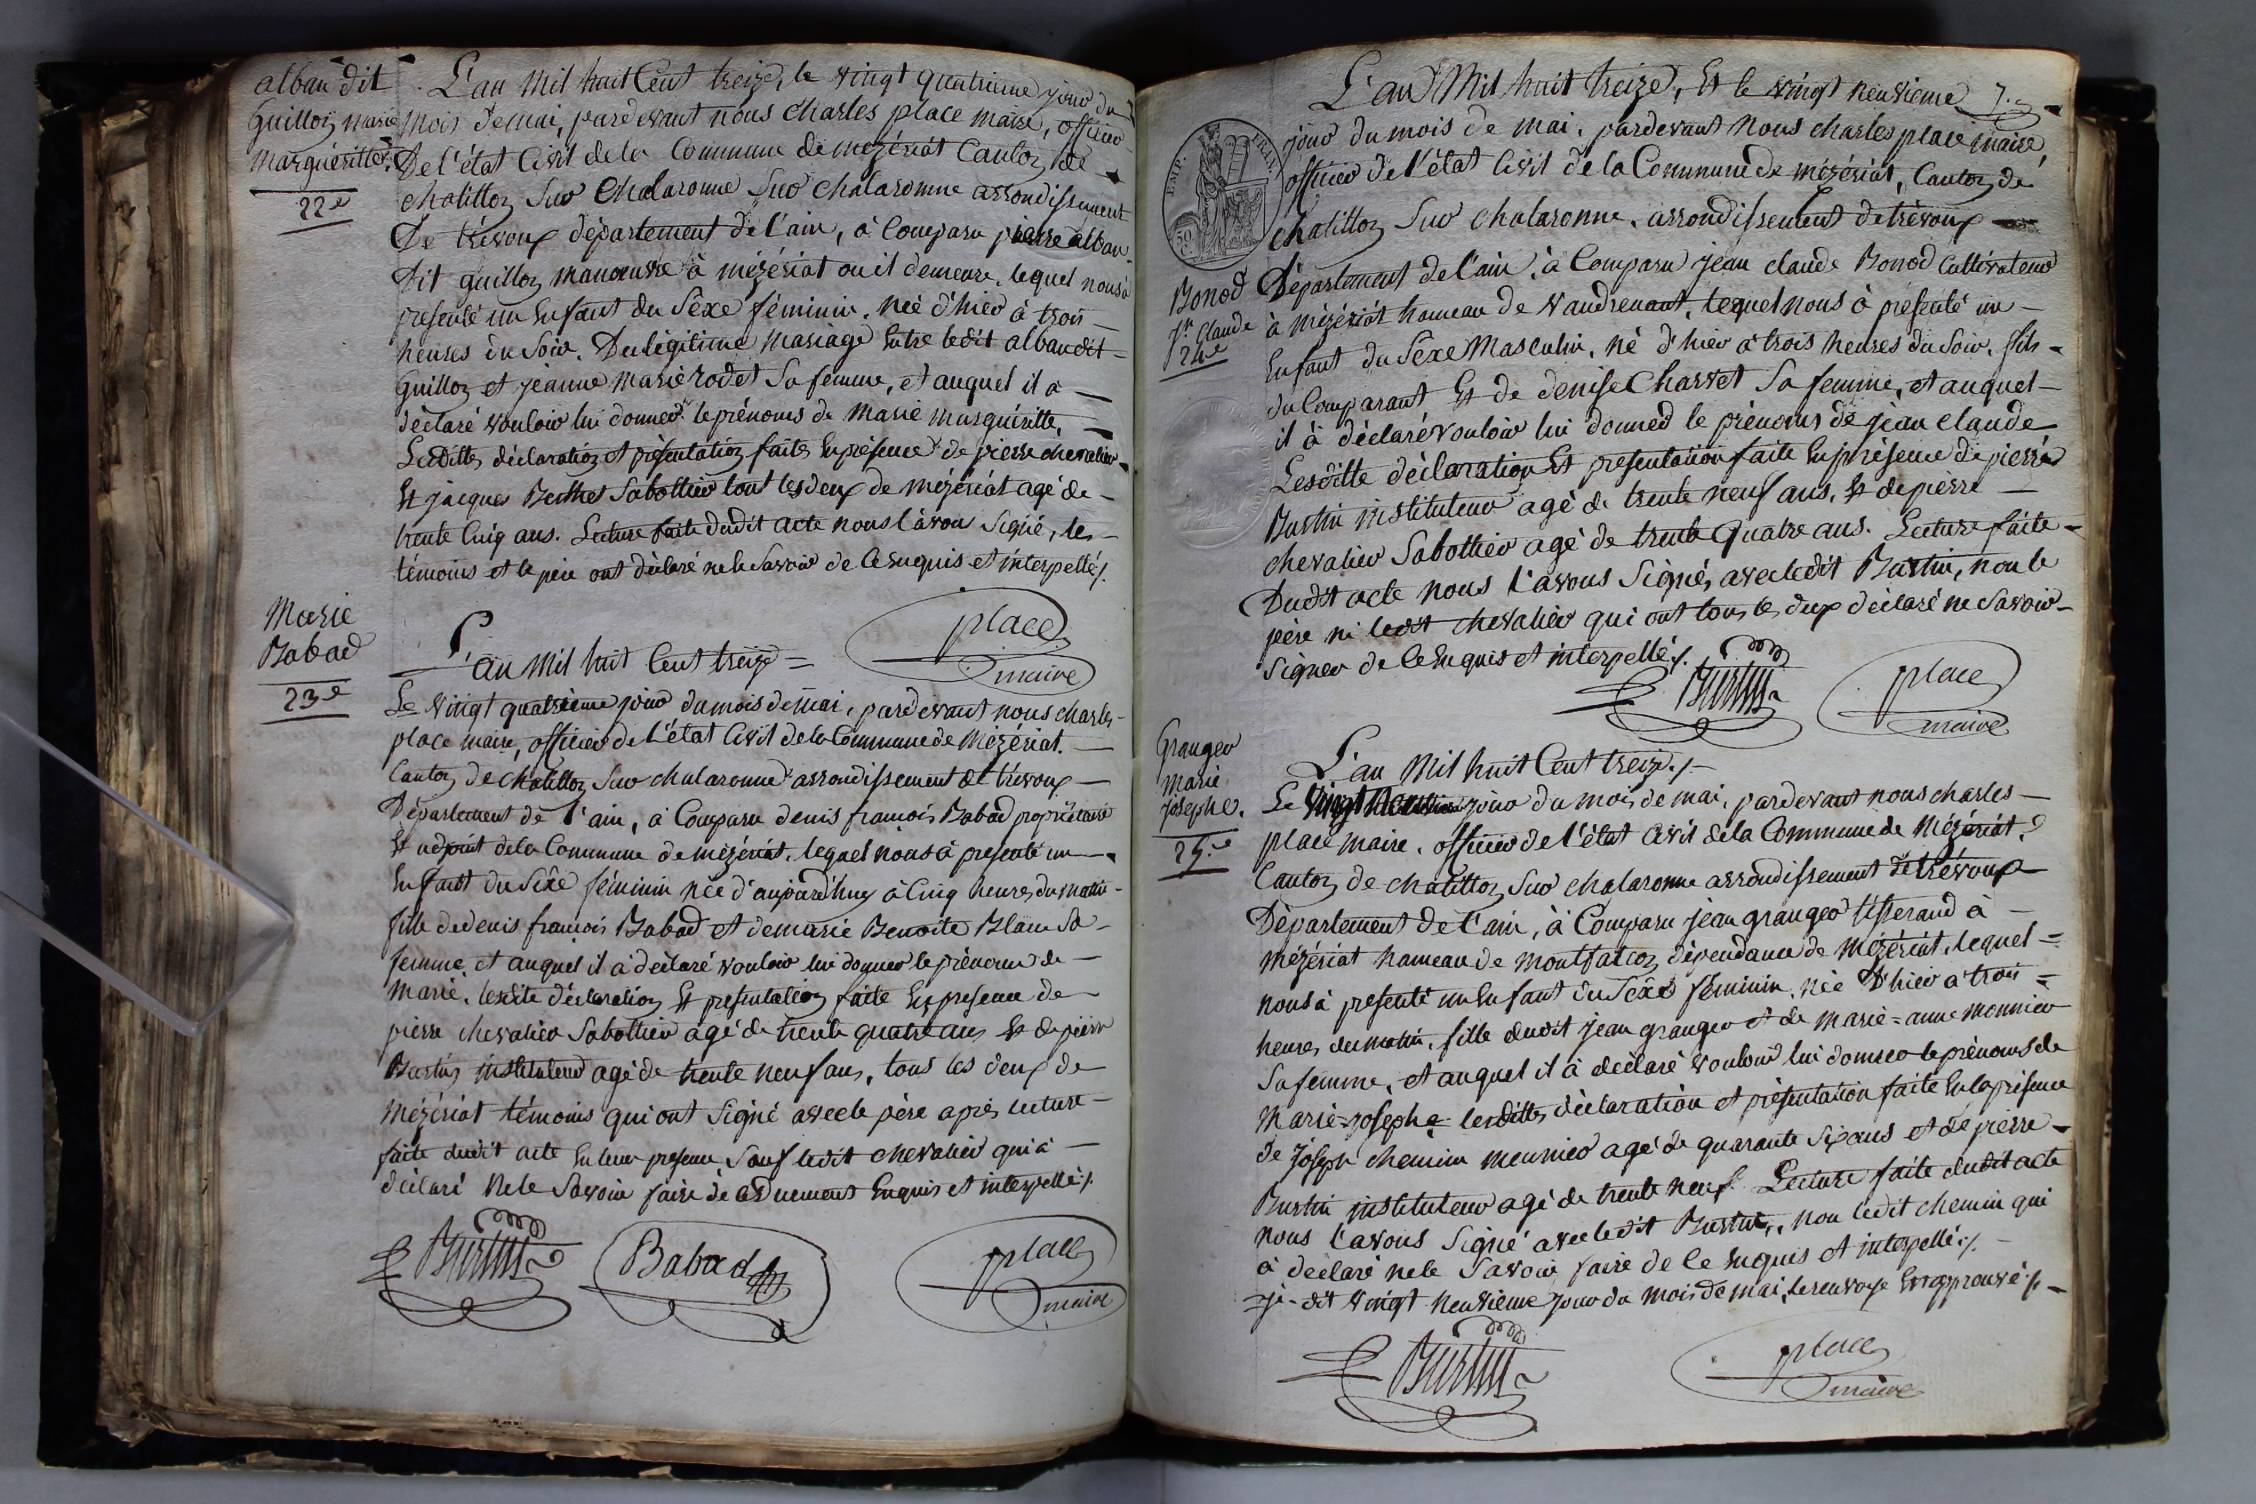 alban dit
Guilloz marie
Margueritte.
22e
L'an Mil huit Cent treize, le vingt quatrieme jour du
Mois de mai, pardevant nous charles place maire, officier
De l'état Civil de la Commune de mézériat Cantoz de
chatilloz Sur Chalaronne Sur chalaronne arrondissement
De trévoux département de l'ain, à Comparu pierre alban
Dit guilloz manoeuvre à mézériat ou il demeure, lequel nous à
presenté un Enfant du Séxe féminin, née d'hier à trois
heures du Soir, Du légitime mariage Entre ledit alban dit
Guilloz et jéanne marie rodet Sa femme, et auquel il a
déclaré vouloir lui donner le prénoms de marie marguéritte,
Lesdittes déclaratioz et présentatioz faites En présence de pierre chevalier
Et jacques Berthet Sabottier tout les deux de mézériat agé de
trente Cinq ans. Lecture faite dudit acte nous l'avon Signé, les
témoins et le père ont déclaré ne le Savoir de Ce Enquis et interpellés/.
place
maire
Marie
Babad
23e
L'an Mil huit Cent treize =
Le vingt quatrième jour du mois de mai, pardevant nous charles
place maire, officier de l'état Civil de la Commune de Mézériat.
Cantoz de chatilloz Sur chalaronne arrondissement de trévoux
Département de l'ain, a Comparu denis françois Babad propriétaire
Et adjoint de la Commune de mézériat, lequel nous à presenté un
Enfant du Sexe féminin née d'aujourd'huy à Cinq heures du matin
fille de denis françois Babad et de marie Benoite Blanc Sa
femme, et auquel il à déclaré vouloir lui donner le prénoms de
marie, lesdite déclaratioz Et presentatioz faite En presence de
pierre chevalier Sabottier agé de trente quatre ans Et de pierre
Burtin instituteur agé de trente neuf ans, tous les deux de
mézériat témoins qui ont Signé avec le père après lecture
faite dudit acte En leur presence, Sauf ledit chevalier qui à
déclaré Ne le Savoir faire de Ce duement Enquis et interpellé/.
Burtin
Babad
place
maire
L'an Mil huit treize, Et le vingt neuvieme
7.
EMP. FRAN.
50
Bonod
Jn. Claude
24e
jour du mois de mai, pardevant nous charles place maire,
officier de l'état Civil de la Commune de mézériat, Cantoz de
chatilloz Sur chalaronne, arrondissement de trévoux
Département de l'ain, à Comparu jean claude Bonod Cultivateur
à mézériat hameau de Vaudrenant, lequel nous à présenté un
Enfant du Sexe Masculin, né d'hier à trois heures du Soir, fils
du Comparant Et de denise Charvet Sa femme, et auquel
il à déclaré vouloir lui donner le prénoms de jean claude
Lesditte déclaration Et presentation faite En présence de pierre
Burtin instituteur agé de trente neuf ans, Et de pierre
chevalier Sabottier agé de trente quatre ans. Lecture faite
Dudit acte nous l'avons Signé, avec ledit Burtin, non le
père ni ledit chevalier qui ont tous les deux déclaré ne Savoir
Signer de Ce Enquis et interpellé/.
Burtin
place
maire
Granger
Marie
Josephe.
25.e
L'an Mil huit Cent treize./.
Le vingt neuvieme jour du mois de mai, pardevant nous charles
place maire, officier de l'état Civil de la Commune de Mézériat
Cantoz de chatilloz Sur chalaronne arrondissement de trévoux
Département de l'ain, à Comparu jean granger tisserand à
Mézériat hameau de montfalcoz dépendance de Mézériat, lequel =
nous à presenté un Enfant du Séxe féminin, née d'hier à trois =
heures du matin, fille dudit jean granger et de marie=anne monnier
Sa femme, et auquel il à déclaré vouloir lui donner le prénoms de
Marie=Josephe lesdittes déclaration et présentation faite En la présence
de Joseph chemin meunier agé de quarante Six ans et de pierre
Burtin instituteur agé de trente neuf. Lecture faite dudit acte
nous l'avons Signé avec ledit Burtin, non ledit chemin qui
à déclaré ne le Savoir faire de Ce Enquis et interpellé./.
je dit vingt neuvieme jour du mois de mai, le renvoye En approuvé/.
Burtin
place
maire